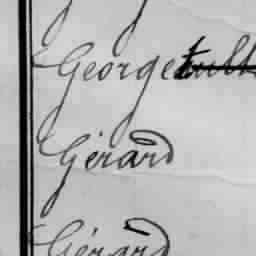 George
Gérard
Gérard